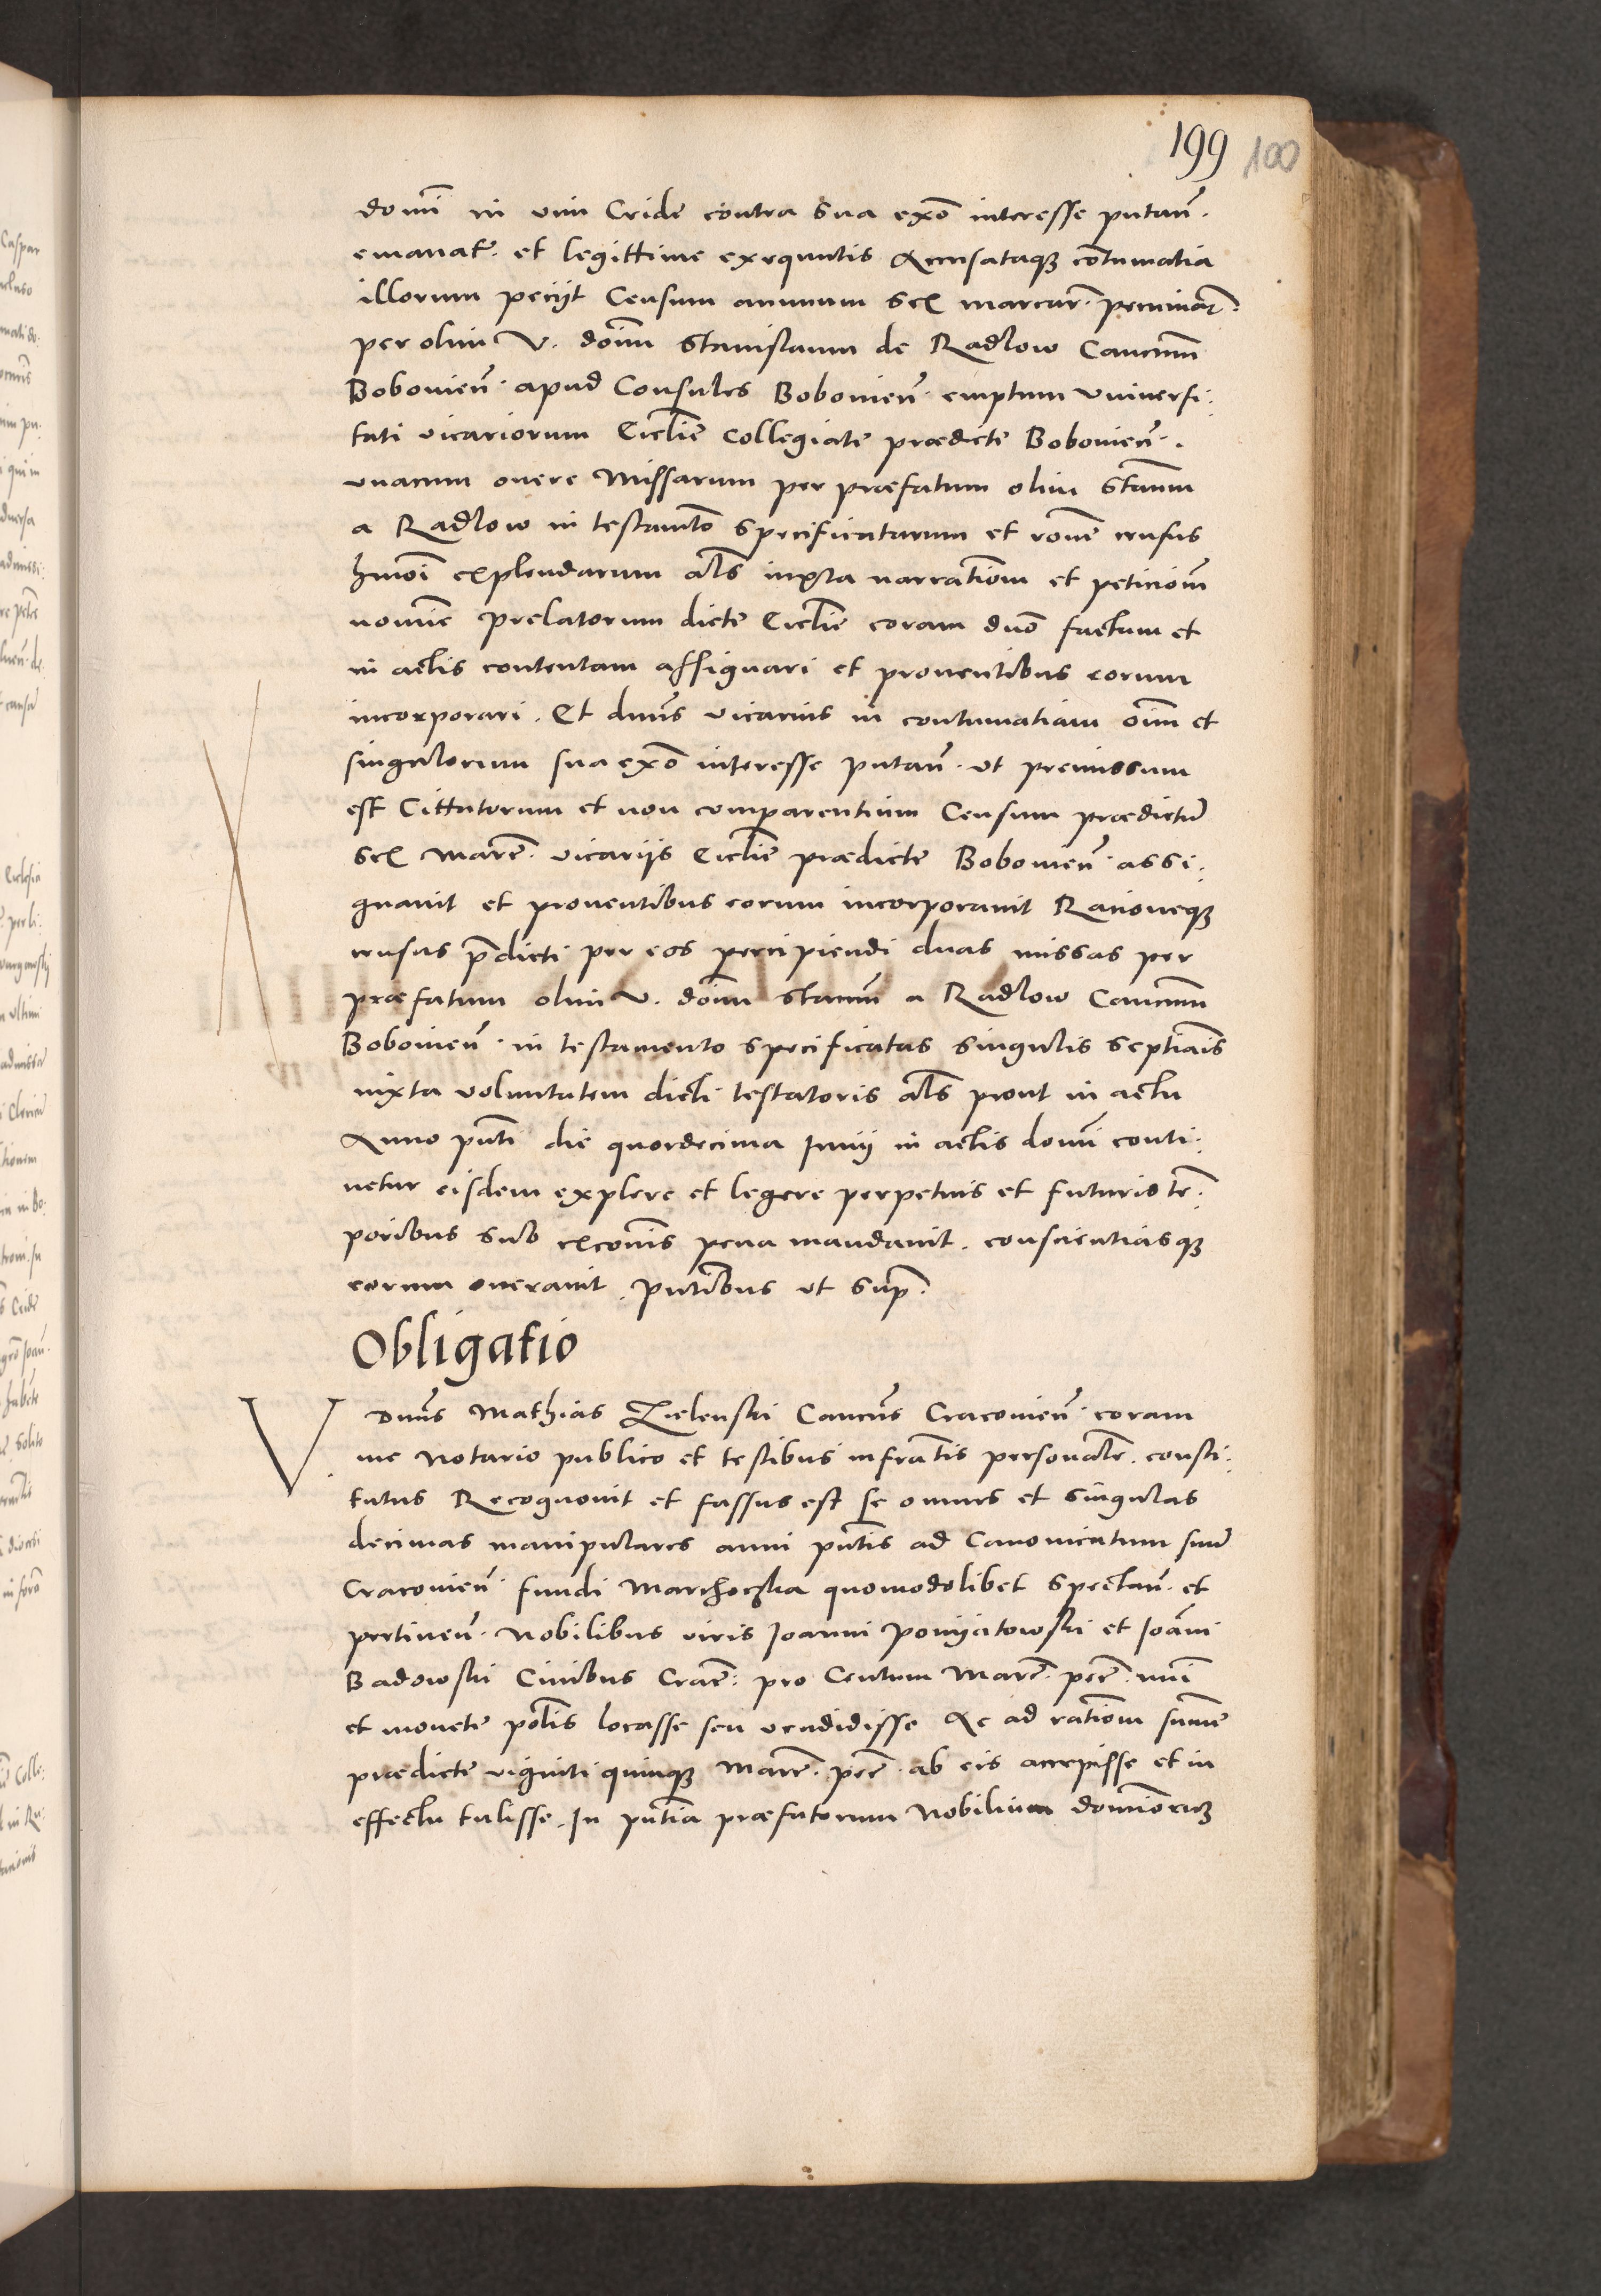 199 100
domi in vim Cride contra sua exo interesse putan.
emanat. et legittime exequutis Accusataque contumatia
illorum peciit Censum annuum sex marcar. pecuniar.
per olim V. domi Stanislaum de Radlow Canonicum
Bobovien. apud Consules Bobovien. emptum Universi:
tati vicariorum Ecclie Collegiate prædicte Bobovien.
unacum onere Missarum per præfatum olim Stanm
a Radlow in testamto specificatarum et rone census
hmoi explendarum als iuxta narrationem et peticionem
nomine prelatorum dicte Ecclie coram duo factam et
in actis contentam assignari et proventibus eorum
incorporari. Et dmns vicarius in contumatiam oim et
singulorum sua exo interesse putan. ut premissum
est Cittatorum et non comparentium Censum prædictum
sex Marc. vicariis Ecclie prædicte Bobovien. assi:
gnavit et proventibus eorum incorporavit Rationeque
census pdicti per eos percipiendi duas missas per
præfatum olim V. domi Stanm a Radlow Canonicum
Bobovien. in testamento specificatas singulis septimais
iuxta voluntatem dicti testatoris als prout in actu
Anno pnti die quordecima Junii in actis domi conti:
netur eisdem explere et legere perpetuis et futuris tem:
poribus sub exconis pena mandavit. conscientiasque
eorum oneravit. Pntibus ut sup.
Obligatio
V. Dmns Mathias Zielenski Canonicus Cracovien. coram
me Notario publico et testibus infratis personalr. consti:
tutus Recognovit et fassus est se omnes et singulas
decimas manipulares anni pntis ad Canonicatum suum
Cracovien. fundi Marchoczka quomodolibet spectan. et
pertinen. Nobilibus viris Joanni Poniiatowski et Joani
Badowski Civibus Crac: pro Centum Marc. pec. nui
et monete polis locasse seu vendidisse Ac ad rationem summe
prædicte viginti quinque Marc. pec. ab eis accepisse et in
effectu tulisse. In pntia præfatorum Nobilium dominorum